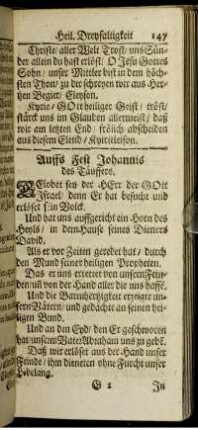 Heil. Dreyfaltigkeit 147
Christe/ aller Welt Trost/ uns Sün-
der allein du hast erlöst/ O Jesu Gottes
Sohn/ unser Mittler bist in dem höch-
sten Thron/ zu dir schreyen wir aus Her-
tzen Begier/ Eleyson.
Kyrie/ GOtt heiliger Geist/ tröst/
stärck uns im Glauben allermeist/ daß
wir am letzten End/ frölich abscheiden
aus diesem Elend/ Kyrieleison.
Auffs Fest Johannis
des Täuffers.
GElobet sey der HErr der GOtt
Israel/ denn Er hat besucht und
erlöset sein Volk.
Und hat uns auffgericht ein Horn des
Heyls/ in dem Hause seines Dieners
David.
Als er vor Zeiten geredet hat/ durch
den Mund seiner heiligen Propheten.
Das er uns errettet von unsern Fein-
den/ uñ von der Hand aller/ die uns hasse.
Und die Barmhertzigkeit erzeigte un-
sern Vätern/ und gedächte an seinen hei-
ligen Bund.
Und an den Eyd/ den Er geschworen
hat unserm Vater Abraham uns zu gebẽ.
Daß wir erlöset aus der Hand unser
Feinde/ ihm dieneten ohne Furcht unser
Lebelang.
G 2 In